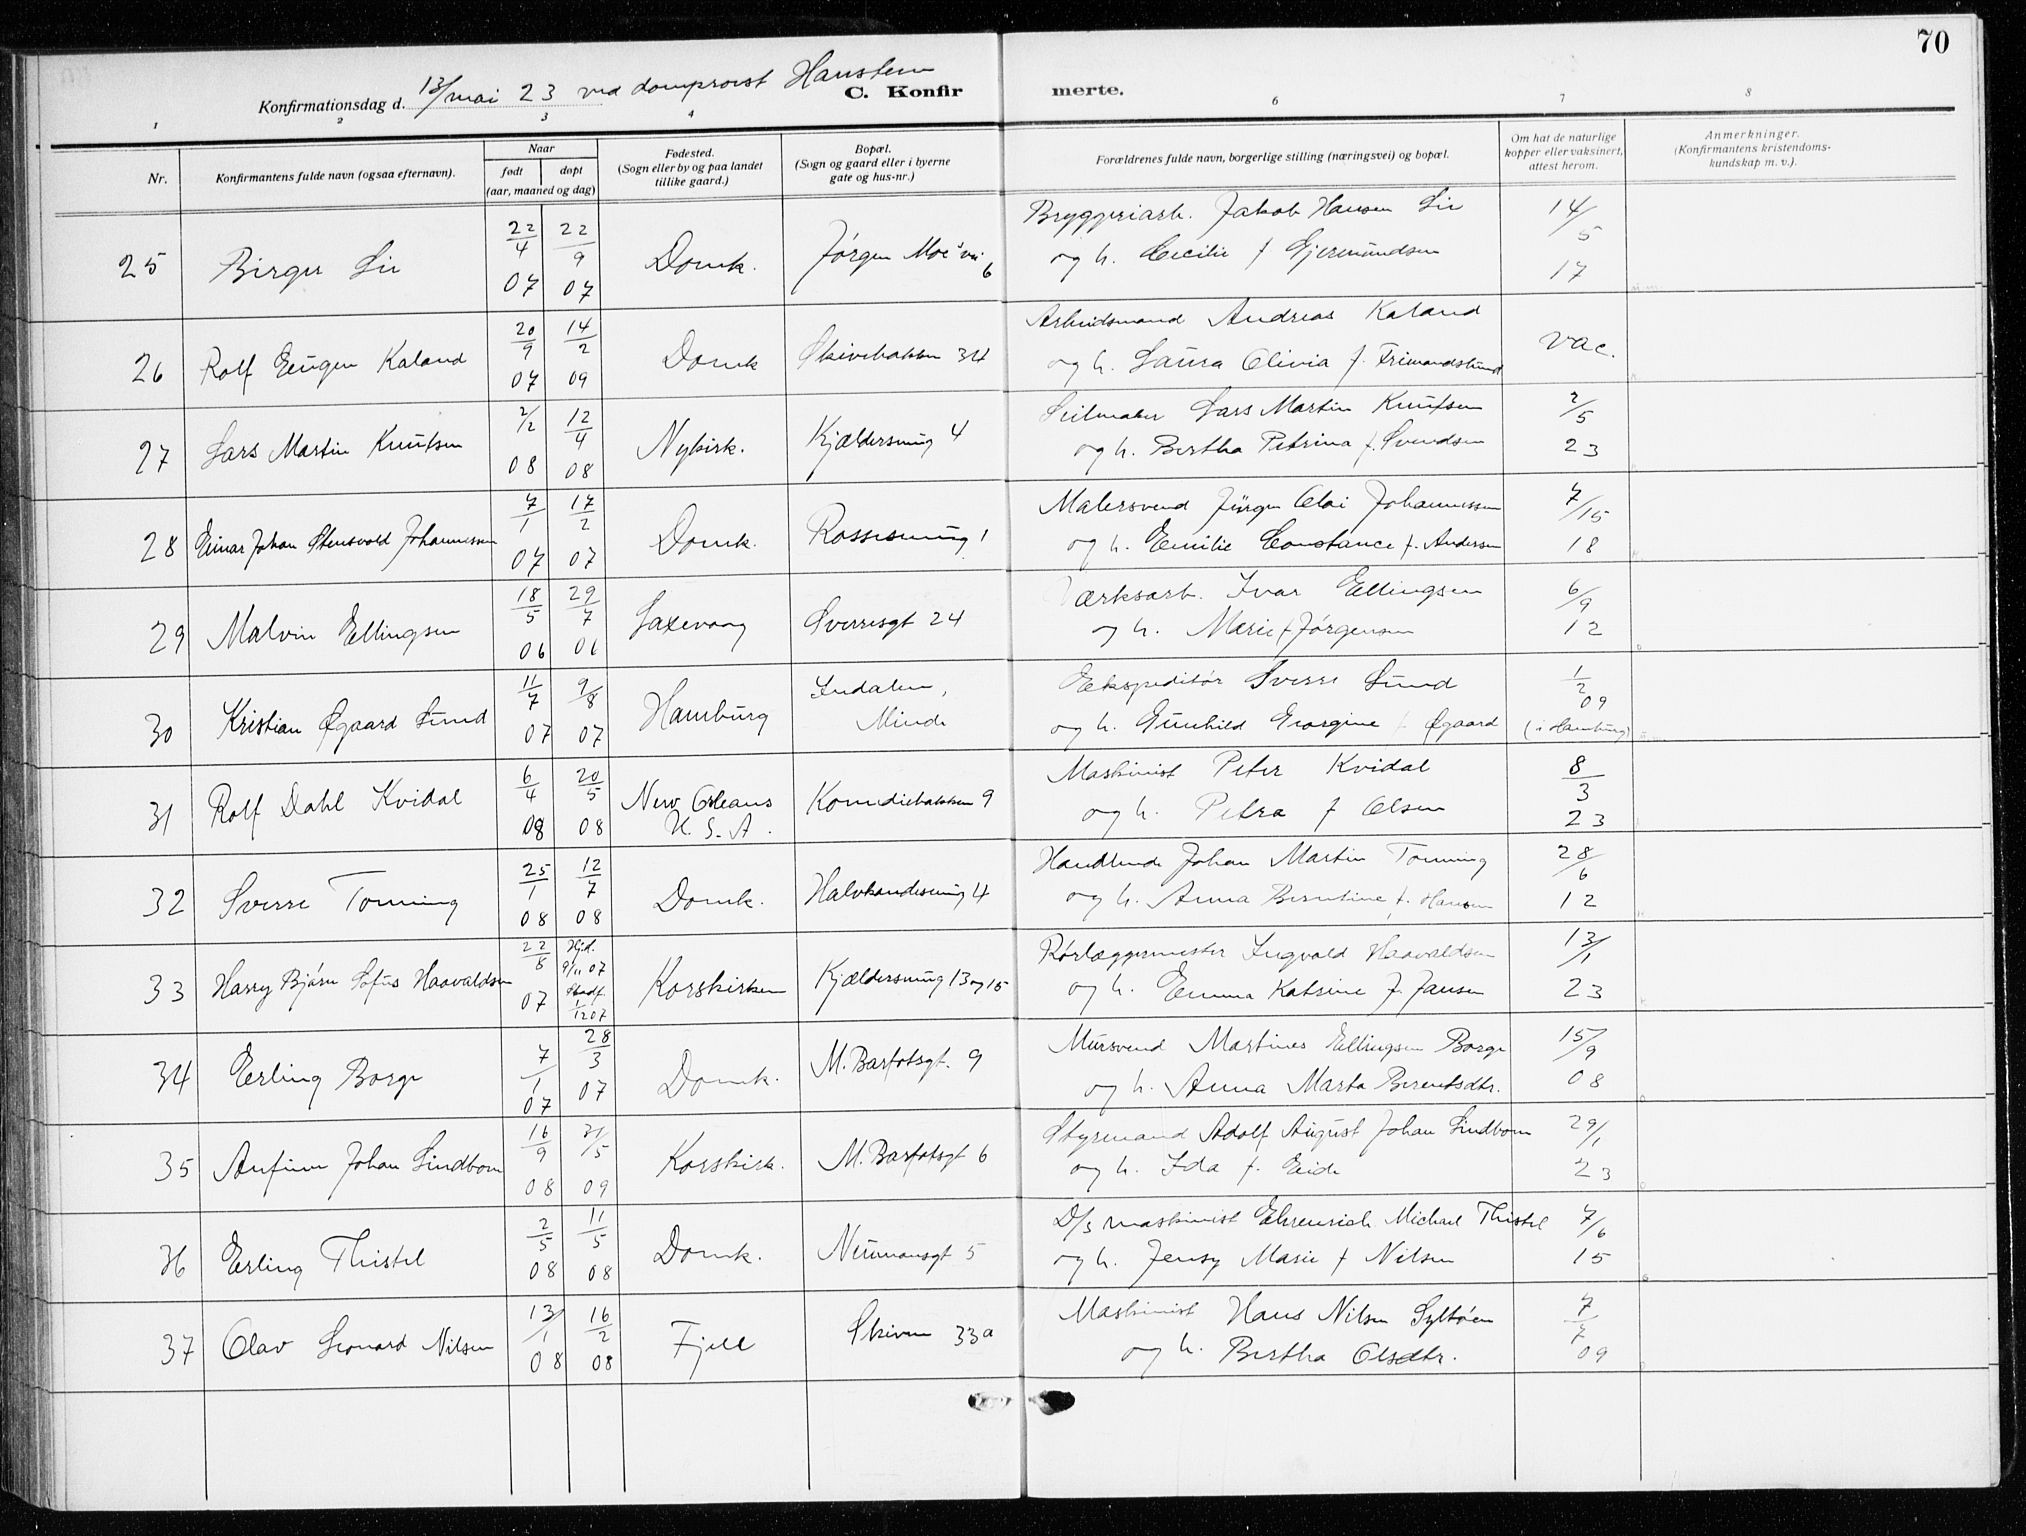 70
Konfirmationsdag d. 13/mai 23 ved domprovst Hanstein
C. Konfirmerte.
1 2 3 4 6 7 8
Nr.
Konfirmantens fulde navn (ogsaa efternavn).
Naar
født døpt
(aar, maaned og dag)
Fødested.
(Sogn eller by og paa landet
tillike gaard.)
Bopæl.
(Sogn og gaard eller i byerne
gate og hus-nr.)
Forældrenes fulde navn, borgerlige stilling (næringsvei) og bopæl.
Om hat de naturlige
kopper eller vaksinert,
attest herom.
Anmerkninger.
(Konfirmantens kristendoms-
kundskap m. v.).
25 Birger Lie 22/4 07 22/9 07 Domk. Jørgen Moe's vei 6 Bryggeriarb. Jakob Hansen Lie 14/5 17
og h. Cecilie f Gjermundsen
26 Rolf Eugen Kaland 20/9 07 14/2 09 Domk Skivebakken 34 Arbeidsmand Andreas Kaland vac.
og h. Laura Olivia f. Frimandslund
27 Lars Martin Knutsen 2/2 08 12/4 08 Nykirk. Kjældersmug 4 Seilmaker Lars Martin Knutsen 2/5 23
og h. Bertha Petrina f. Svendsen
28 Einar Johan Stensvold Johannessen 7/1 07 17/2 07 Domk. Rossesmug 1 Malersvend Jürgen Olai Johannessen 7/15 18
og h. Emilie Constance f. Andersen
29 Malvin Ellingsen 18/5 06 29/7 06 Laxevaag Sverresgt 24 Værksarb. Ivar Ellingsen 6/9 12
og h. Marie f Jørgensen
30 Kristian Øgaard Lund 11/7 07 9/8 07 Hamburg Indalen, Minde Ekspeditør Sverre Lund 1/2 09
og h. Gunhild Georgine f Øgaard (i Hamburg)
31 Rolf Dahl Kvidal 6/4 08 20/5 08 New Orleans U. S. A. Komediebakken 9 Maskinist Peter Kvidal 8/3 23
og h. Petra f Olsen
32 Sverre Tonning 25/1 08 12/7 08 Domk. Halvkandesmug 4 Handlende Johan Martin Tonning 28/6 12
og h. Anna Berntine f. Hansen
33 Harry Bjørn Sofus Haavaldsen 22/8 07 Hjd. 9/11 07 Stadf. 1/12 07 Korskirken Kjældersmug 13 og 15 Rørlæggermester Ingvald Haavaldsen 13/1 23
og h. Emma Katrine f. Jansen
34 Erling Borge 7/1 07 28/3 07 Domk. M. Barfotsgt. 9 Mursvend Martines Ellingsen Borge 15/9 08
og h. Anna Marta Berentsdtr.
35 Anfinn Johan Lindbom 16/9 08 31/5 09 Korskirk. M. Barfotsgt 6 Styrmand Adolf August Johan Lindbom 29/1 23
og h. Ida f. Eide
36 Erling Thistel 2/5 08 11/5 08 Domk. Neumansgt 5 D/s maskinist Ehrenrich Michael Thistel 7/6 15
og h. Jensy Marie f Nilsen
37 Olav Leonard Nilsen 13/1 08 16/2 08 Fjell Skiven 33a Maskinist Hans Nilsen Syltøen 7/7 09
og h. Bertha Olsdtr.